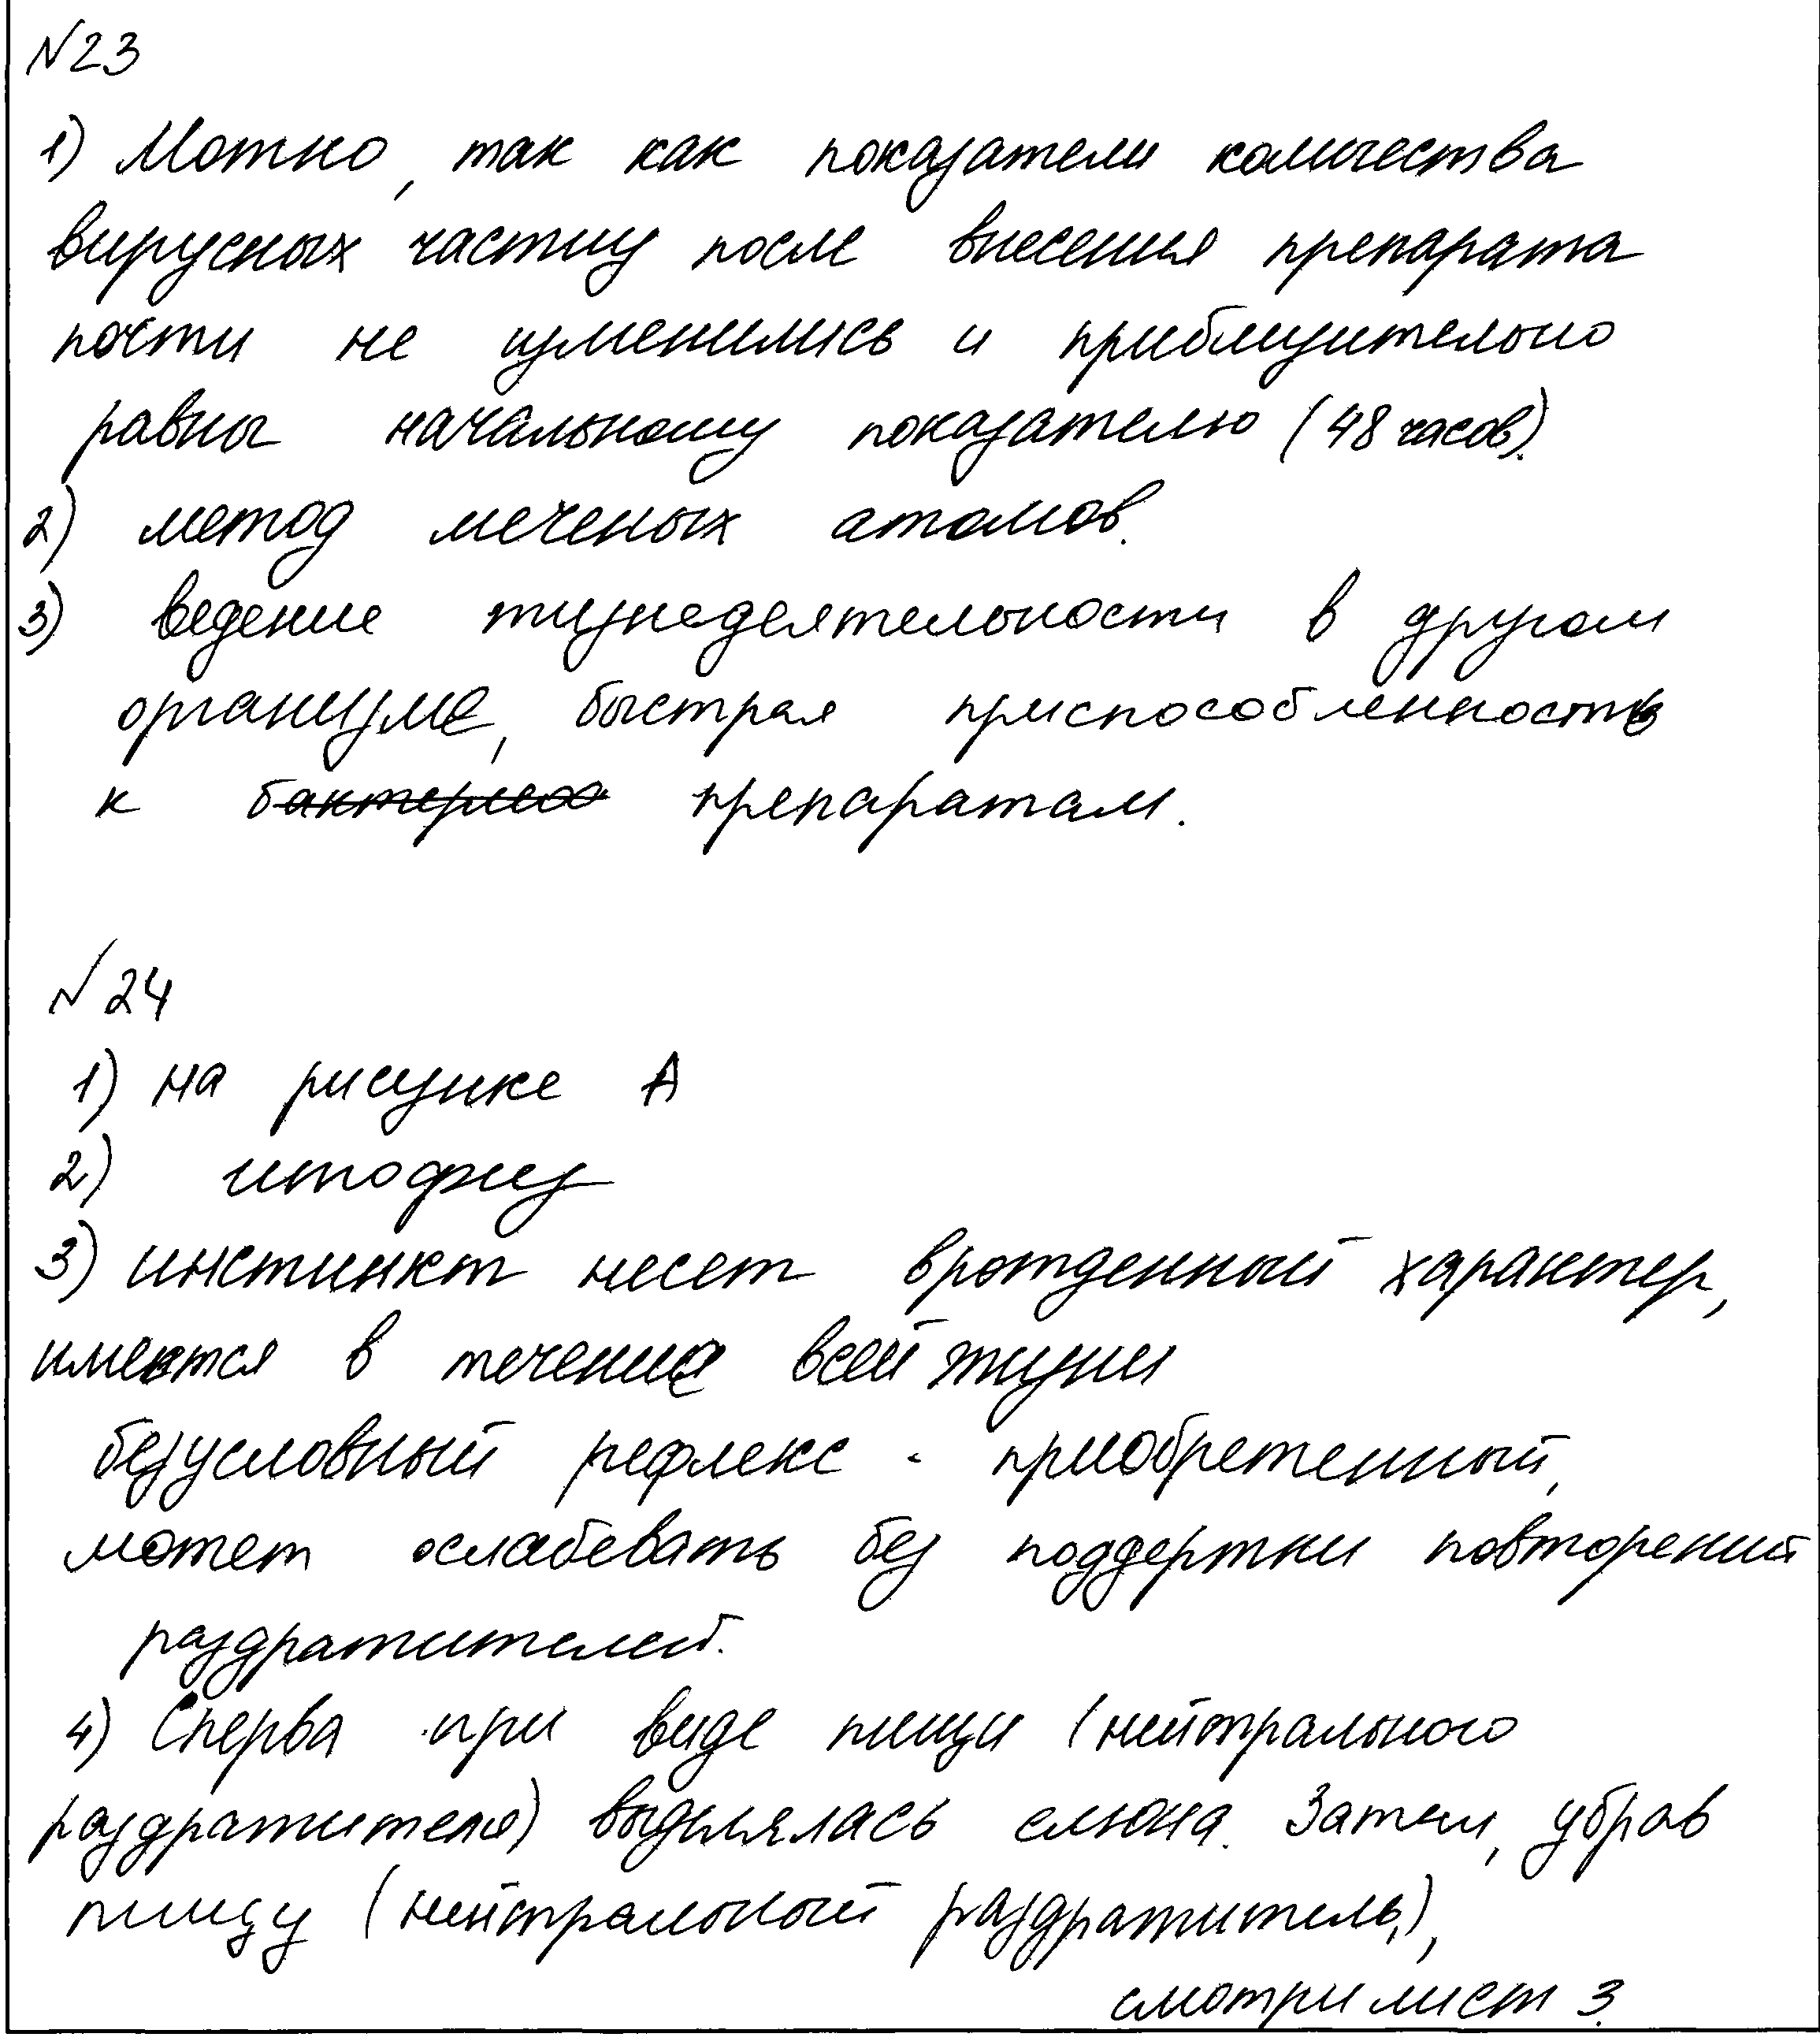 №23
1) Можно, так как показатели количества
вирусных частиц после внесения препарата
почти не изменились и приблизительно
равны начальному показателю (48 часов).
2) метод меченых атомов.
3) ведение жизнедеятельности в другом
организме, быстрая приспособленность
к бактериям препаратам.
№24
1) на рисунке А
2) гипофиз
3) инстинкт несет врожденный характер,
имеется в течение всей жизни
безусловный рефлекс - приобретенный,
может ослабевать без поддержки повторений
раздражителей.
4) Сперва при виде пищи (нейтрального
раздражителя) выделялась слюна. Затем, убрав
пищу (нейтральный раздражитель),
смотри лист 3.